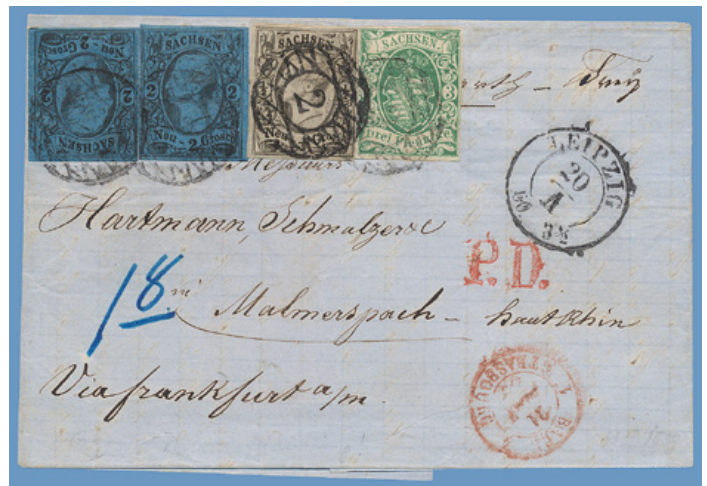 SACHSEN
2 2
Neu - 2 Grosch
SACHSEN
2 2
Neu - 2 Grosch
SACHSEN
2
Neu
SACHSEN
3
Drei Pfennige
Frey
LEIPZIG
20
3½
Messieurs
Hartmann, Schmalzer &c
P.D.
18
Malmerspach - haut Rhin
Via frankfurt a/m.
STRASBOURG
21